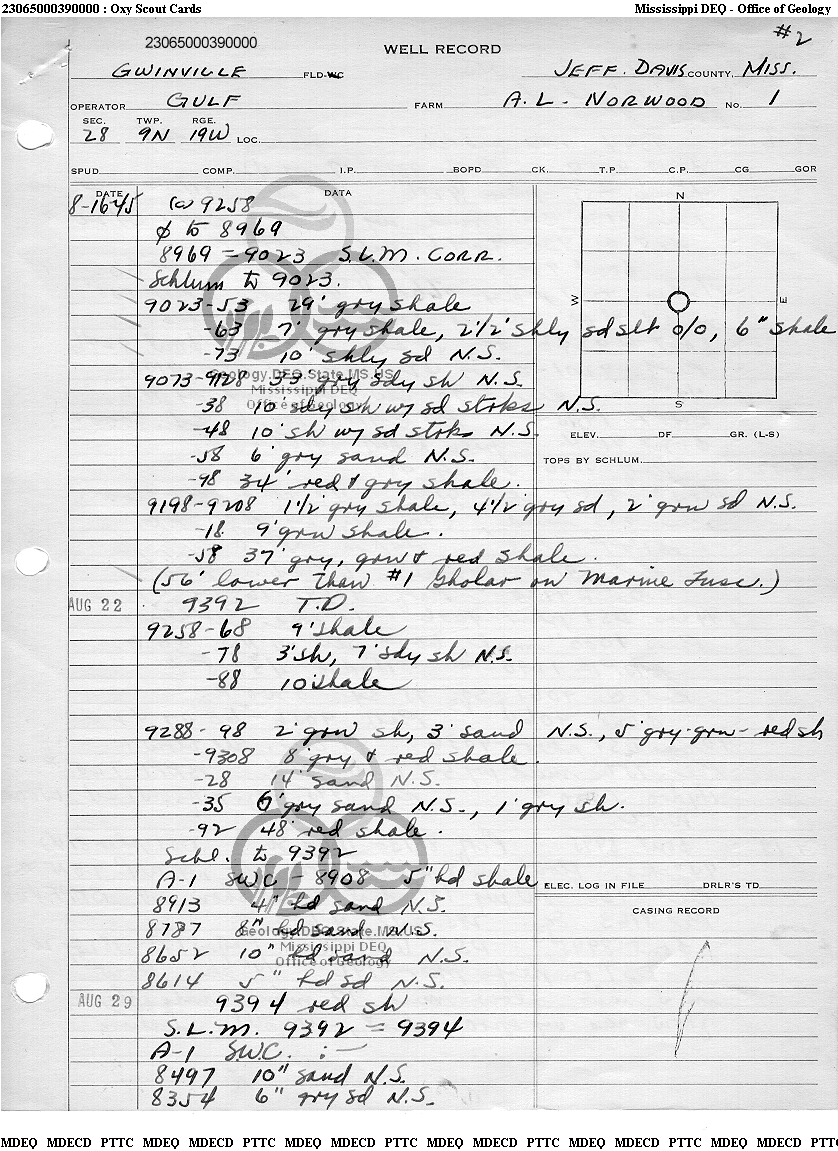 23065000390000 : Oxy Scout Cards Mississippi DEQ - Office of Geology
#2
23065000390000
WELL RECORD
GWINVILLE FLD-WC JEFF. DAVIS COUNTY, MISS.
OPERATOR GULF FARM A. L. NORWOOD No. 1
SEC. TWP. RGE.
28 9N 19W LOC.
SPUD COMP. I.P. BOPD CK. T.P. C.P. CG GOR
DATE DATA
8-16-45 @ 9258
ø to 8969
8969 = 9023 S.L.M. CORR.
Schlum to 9023.
9023-53 29' gry shale
-63 7' gry shale, 2 1/2' shly sd slt o/o, 6" shale
-73 10' shly sd N.S.
9073-9128 33' gry sdy sh N.S.
-38 10' sdy sh w/ sd strks N.S.
-48 10' sh w/ sd strks N.S.
-58 6' gry sand N.S.
-98 34' red & gry shale.
9198-9208 1 1/2' gry shale, 4 1/2' gry sd, 2' grn sd N.S.
-18 9' grn shale.
-58 37' gry, grn & red shale.
(56' lower than #1 Gholar on Marine Tusc.)
AUG 22 9392 T.D.
9258-68 9' shale
-78 3' sh, 7' sdy sh N.S.
-88 10' shale
9288-98 2' grn sh, 3' sand N.S., 5' gry-grn-red sh
-9308 8' gry & red shale.
-28 14' sand N.S.
-35 6' gry sand N.S., 1' gry sh.
-92 48' red shale.
Schl. to 9392
A-1 SWC - 8908 5" hd shale
8913 4" hd sand N.S.
8787 8" hd sand N.S.
8652 10" hd sand N.S.
8614 5" hd sd N.S.
AUG 29 9394 red sh
S.L.M. 9392 = 9394
A-1 SWC. :-
8497 10" sand N.S.
8354 6" gry sd N.S.
N
W E
S
ELEV. DF. GR. (L-S)
TOPS BY SCHLUM.
ELEC. LOG IN FILE DRLR'S TD
CASING RECORD
Geology.DEQ.State.MS.US
Mississippi DEQ
Office of Geology
Geology.DEQ.State.MS.US
Mississippi DEQ
Office of Geology
MDEQ MDECD PTTC MDEQ MDECD PTTC MDEQ MDECD PTTC MDEQ MDECD PTTC MDEQ MDECD PTTC MDEQ MDECD PTTC